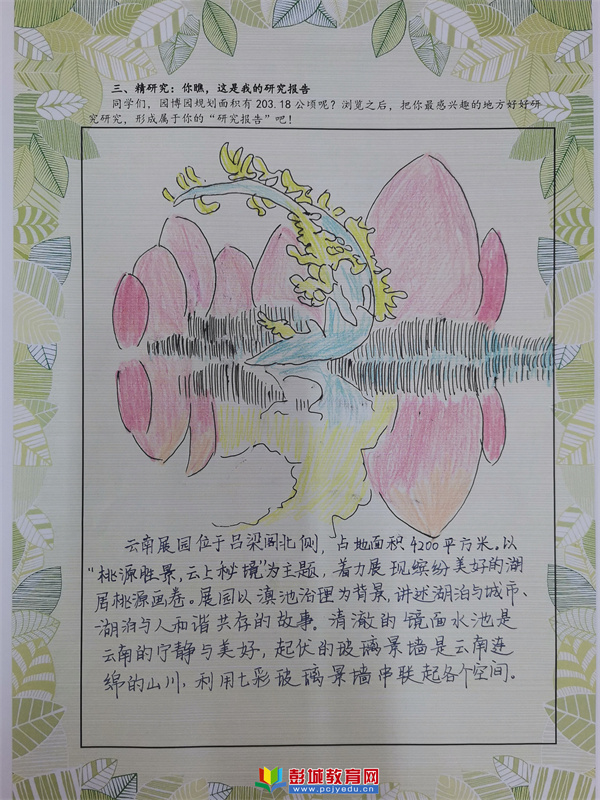 三、精研究：你瞧，这是我的研究报告
同学们，园博园规划面积有203.18公顷呢？浏览之后，把你最感兴趣的地方好好研
究研究，形成属于你的“研究报告”吧！
云南展园位于吕梁阁北侧，占地面积4200平方米。以
“桃源胜景，云上秘境”为主题，着力展现缤纷美好的湖
居桃源画卷。展园以滇池治理为背景，讲述湖泊与城市、
湖泊与人和谐共存的故事。清澈的镜面水池是
云南的宁静与美好，起伏的玻璃景墙是云南连
绵的山川，利用七彩玻璃景墙串联起各个空间。
彭城教育网
www.pcjyedu.cn